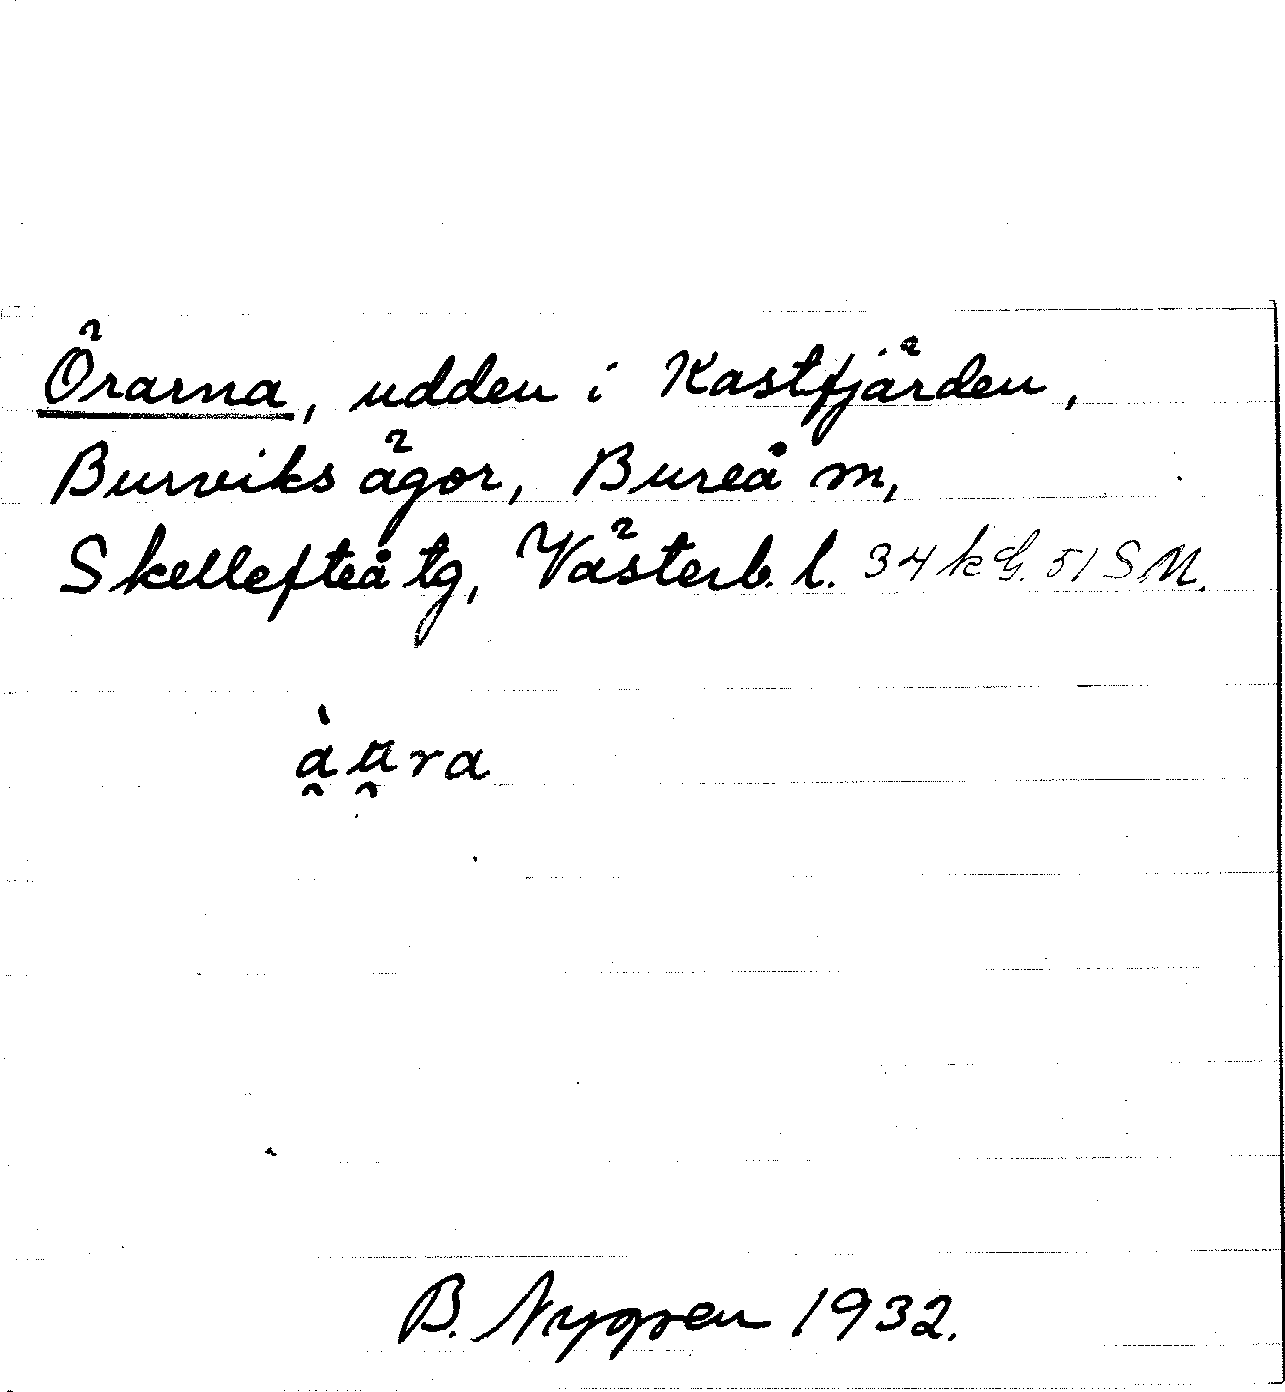 Örarna, udden i Kastfjärden,
Burviks ägor, Bureå m,
Skellefteå tg, Västerb. l. 34 k G. 51 SM.
B. Nygren 1932.